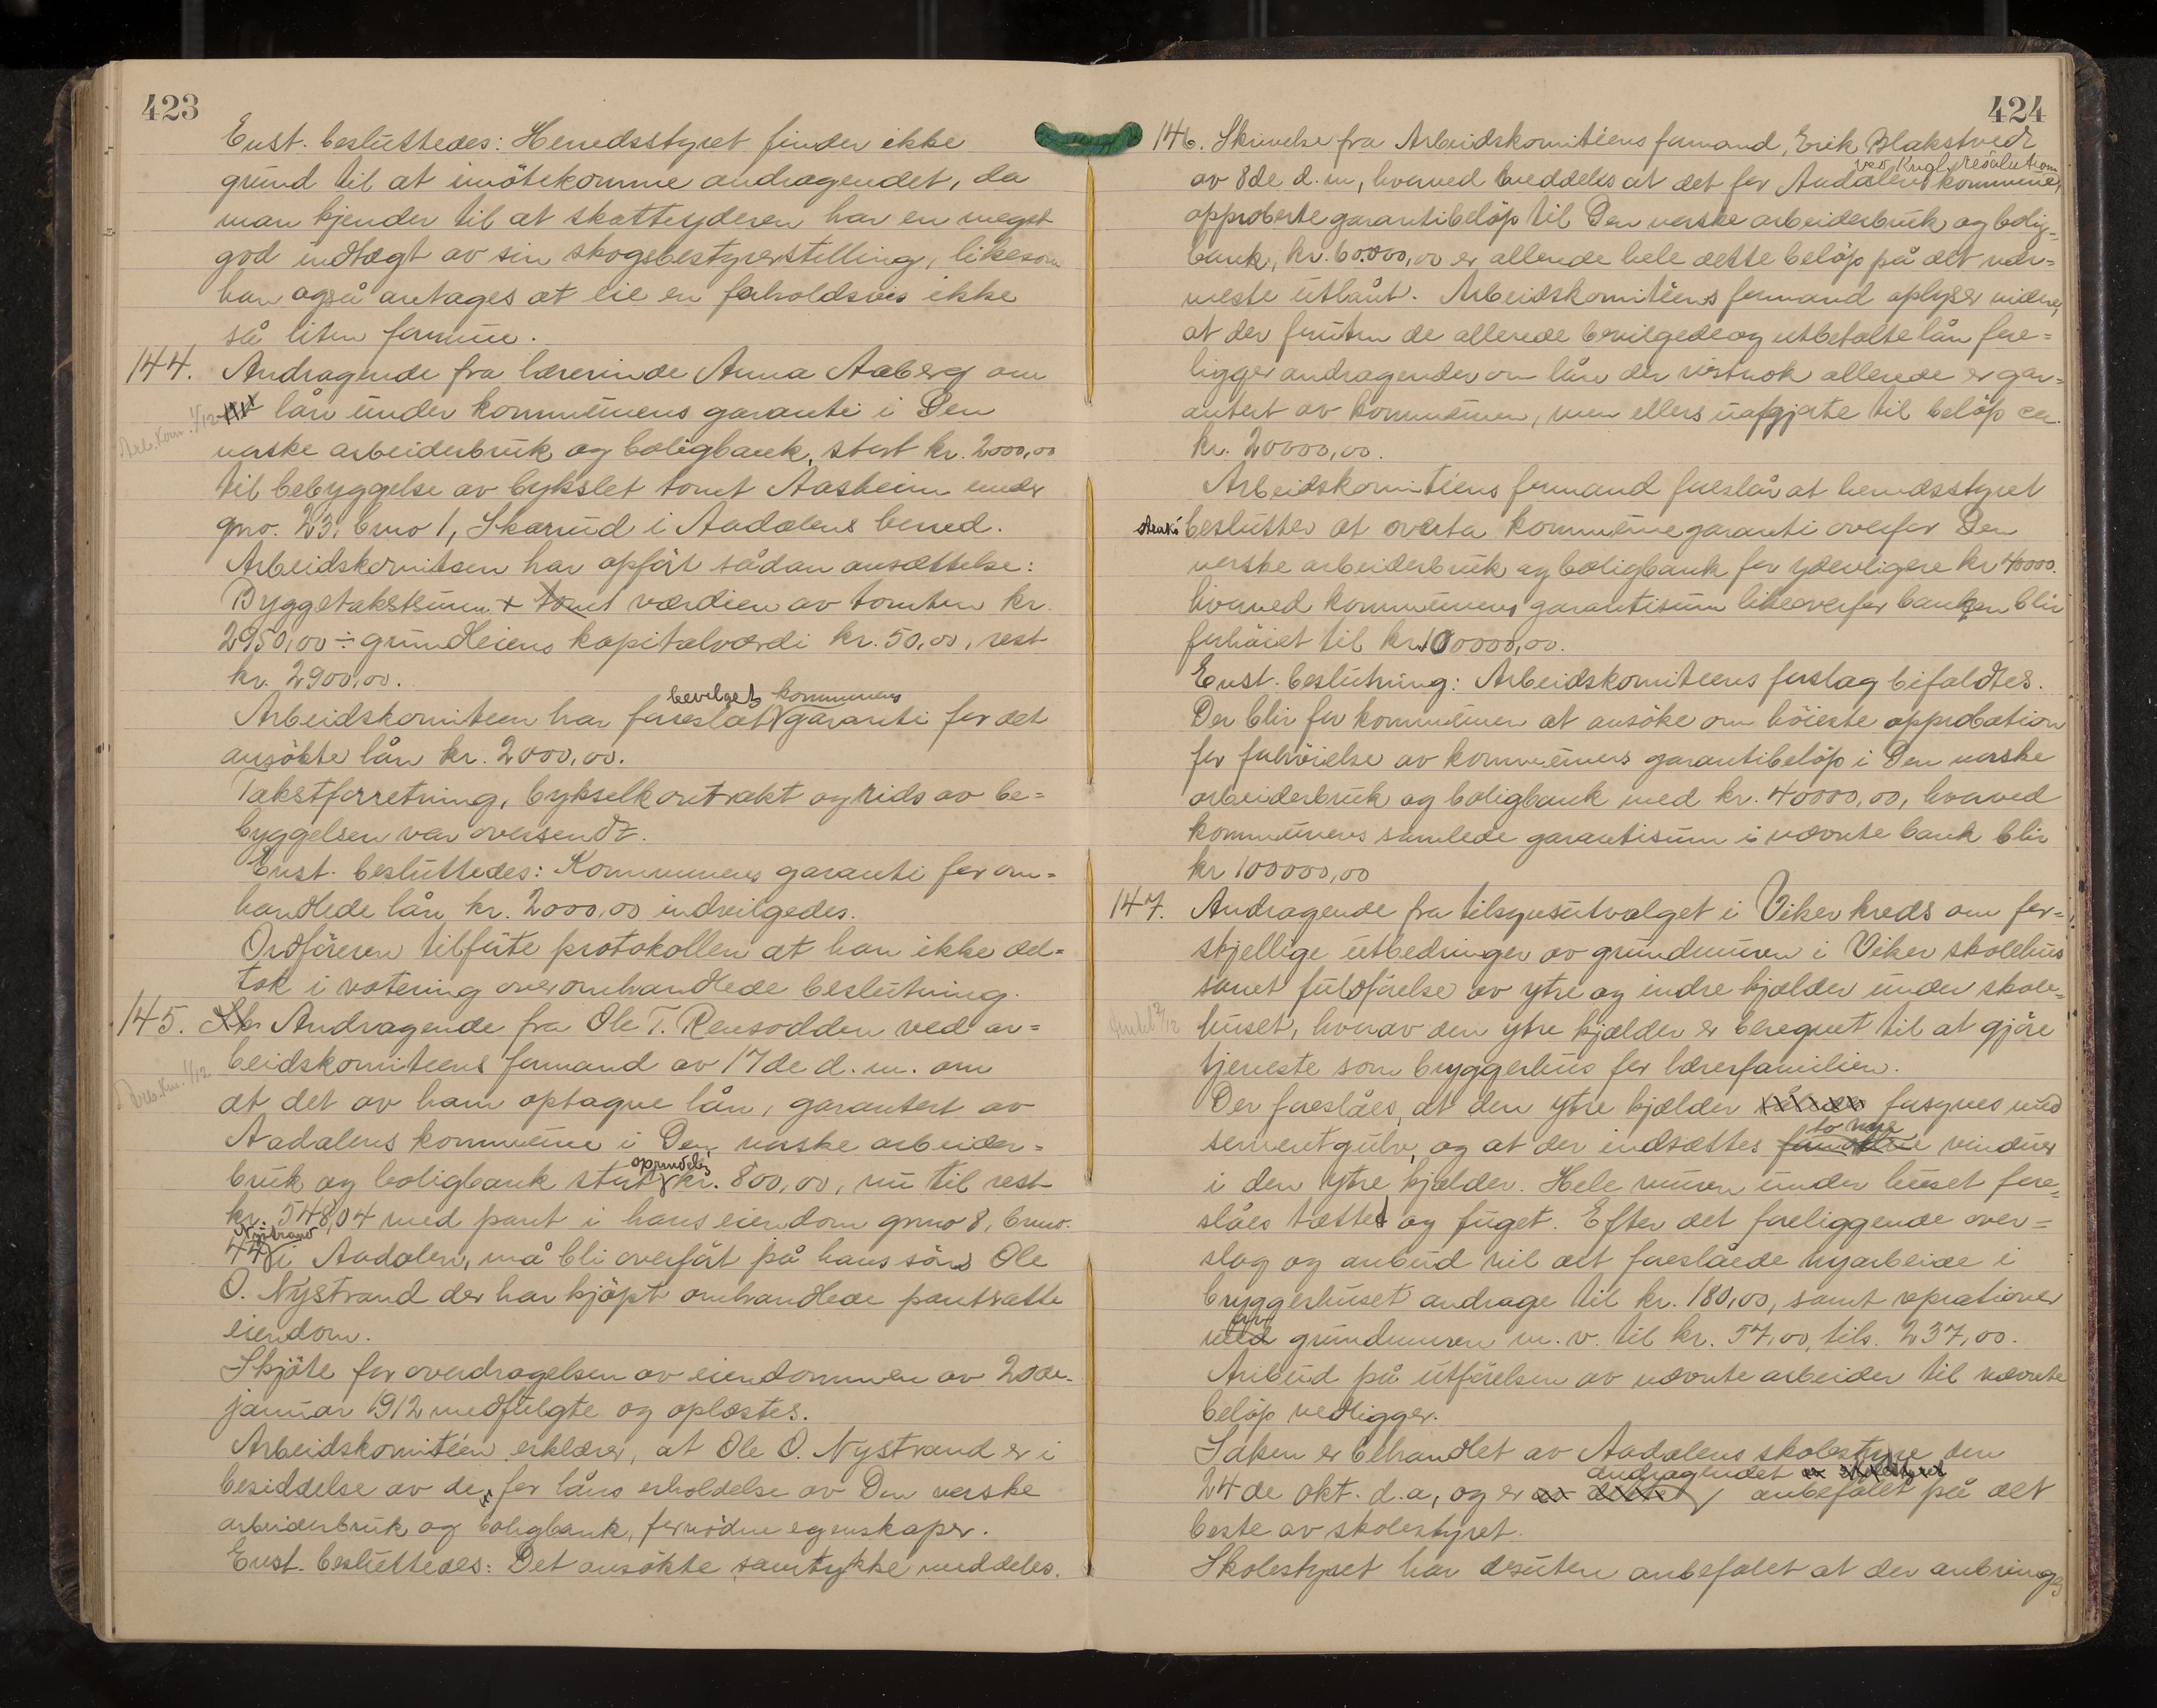 423
Enst. besluttedes: Herredsstyret finder ikke
grund til at imötekomme andragendet, da
man kjender til at skatteyderen har en meget
god indtægt av sin skogsbestyrerstilling, likesom
han også antages at eie en forholdsvis ikke
så liten formue.
144. Andragende fra lærerinde Anna Aaberg om
Arb.Kom. 1/12 lån under kommunens garanti i Den
norske arbeiderbruk og boligbank, stort kr. 2000,00
til bebyggelse av bykslet tomt Aasheim under
gno. 23, bno 1, Skarud i Aadalens herred.
Arbeidskomiteen har opfört sådan ansættelse:
Byggetakstsum + tomt værdien av tomten kr.
2950,00 ÷ grundleiens kapitalværdi kr. 50,00, rest
kr. 2900,00.
bevilget kommunens
Arbeidskomiteen har foreslåt garanti for det
ansökte lån kr. 2000,00.
Takstforretning, bykselkontrakt og rids av be=
byggelsen var oversendt.
Enst. besluttedes: Kommunens garanti for om=
handlede lån kr. 2000,00 indvilgedes.
Ordföreren tilförte protokollen at han ikke del=
tok i votering over omhandlede beslutning.
145. Andragende fra Ole T. Rensodden ved ar=
beidskomiteens formand av 17de d. m. om
Arb.Km. 1/12
at det av ham optagne lån, garantert av
Aadalens kommune i Den norske arbeider=
oprindelig
bruk og boligbank stort kr. 800,00, nu til rest
kr. 548,04 med pant i hans eiendom gno 8, bno.
Nystrand
44 i Aadalen, må bli overfört på hans söns Ole
O. Nystrand der har kjöpt omhandlede pantsatte
eiendom.
Skjöte for overdragelsen av eiendommen av 20de
januar 1912 medfulgte og oplæstes.
Arbeidskomitéen erklærer, at Ole O. Nystrand er i
besiddelse av de for låns erholdelse av Den norske
arbeiderbruk og boligbank, fornödne egenskaper.
Enst. besluttedes: Det ansökte samtykke meddeles.
424
146. Skrivelse fra Arbeidskomitéens formand, Erik Blakstvedt
ved Kngl. resolution
av 8de d. m, hvorved meddeles at det for Aadalens kommune
approberte garantibelöp til Den norske arbeiderbruk og bolig=
bank, kr. 60.000,00 er allerede hele dette belöp på det nær=
meste utlånt. Arbeidskomitéens formand oplyser videre,
at der foruten de allerede bevilgede og utbetalte lån fore=
ligger andragender om lån der vistnok allerede er gar=
antert av kommunen, men ellers uafgjorte til belöp ca.
kr. 20000,00.
Arbeidskomitéens formand foreslår at herredsstyret
straks beslutter at overta kommunegaranti overfor Den
norske arbeiderbruk og boligbank for yderligere kr 40000.
hvorved kommunens garantisum likeoverfor banken blir
forhöiet til kr. 100000,00.
Enst. beslutning: Arbeidskomiteens forslag bifaldtes.
Der blir for kommunen at ansöke om höieste approbation
for forhöielse av kommunens garantibelöp i Den norske
arbeiderbruk og boligbank med kr. 40000,00, hvorved
kommunens samlede garantisum i nævnte bank blir
kr 100000,00
147. Andragende fra tilsynsutvalget i Viker kreds om for=
skjellige utbedringer av grundmuren i Viker skolehus
samt fuldförelse av ytre og indre kjælder under skole=
huset, hvorav den ytre kjælder er beregnet til at gjöre
tjeneste som bryggerhus for lærerfamilien.
Der foreslåes, at den ytre kjælder forsynes med
to nye
sementgulv, og at der indsættes vinduer
i den ytre kjælder. Hele muren under huset fore=
slåes tættet og fuget. Efter det foreliggende over=
slag og anbud vil det foreslåede nyarbeide i
bryggerhuset andrage til kr. 180,00, samt reprationer
av
med grundmuren m. v. til kr. 57,00, tils. 237,00.
Anbud på utförelsen av nævnte arbeider til nævnte
belöp vedligger.
Saken er behandlet av Aadalens skolestyre den
andragendet
24de okt. d. a, og er anbefalet på det
beste av skolestyret.
Skolestyret har desuten anbefalet at der anbringes